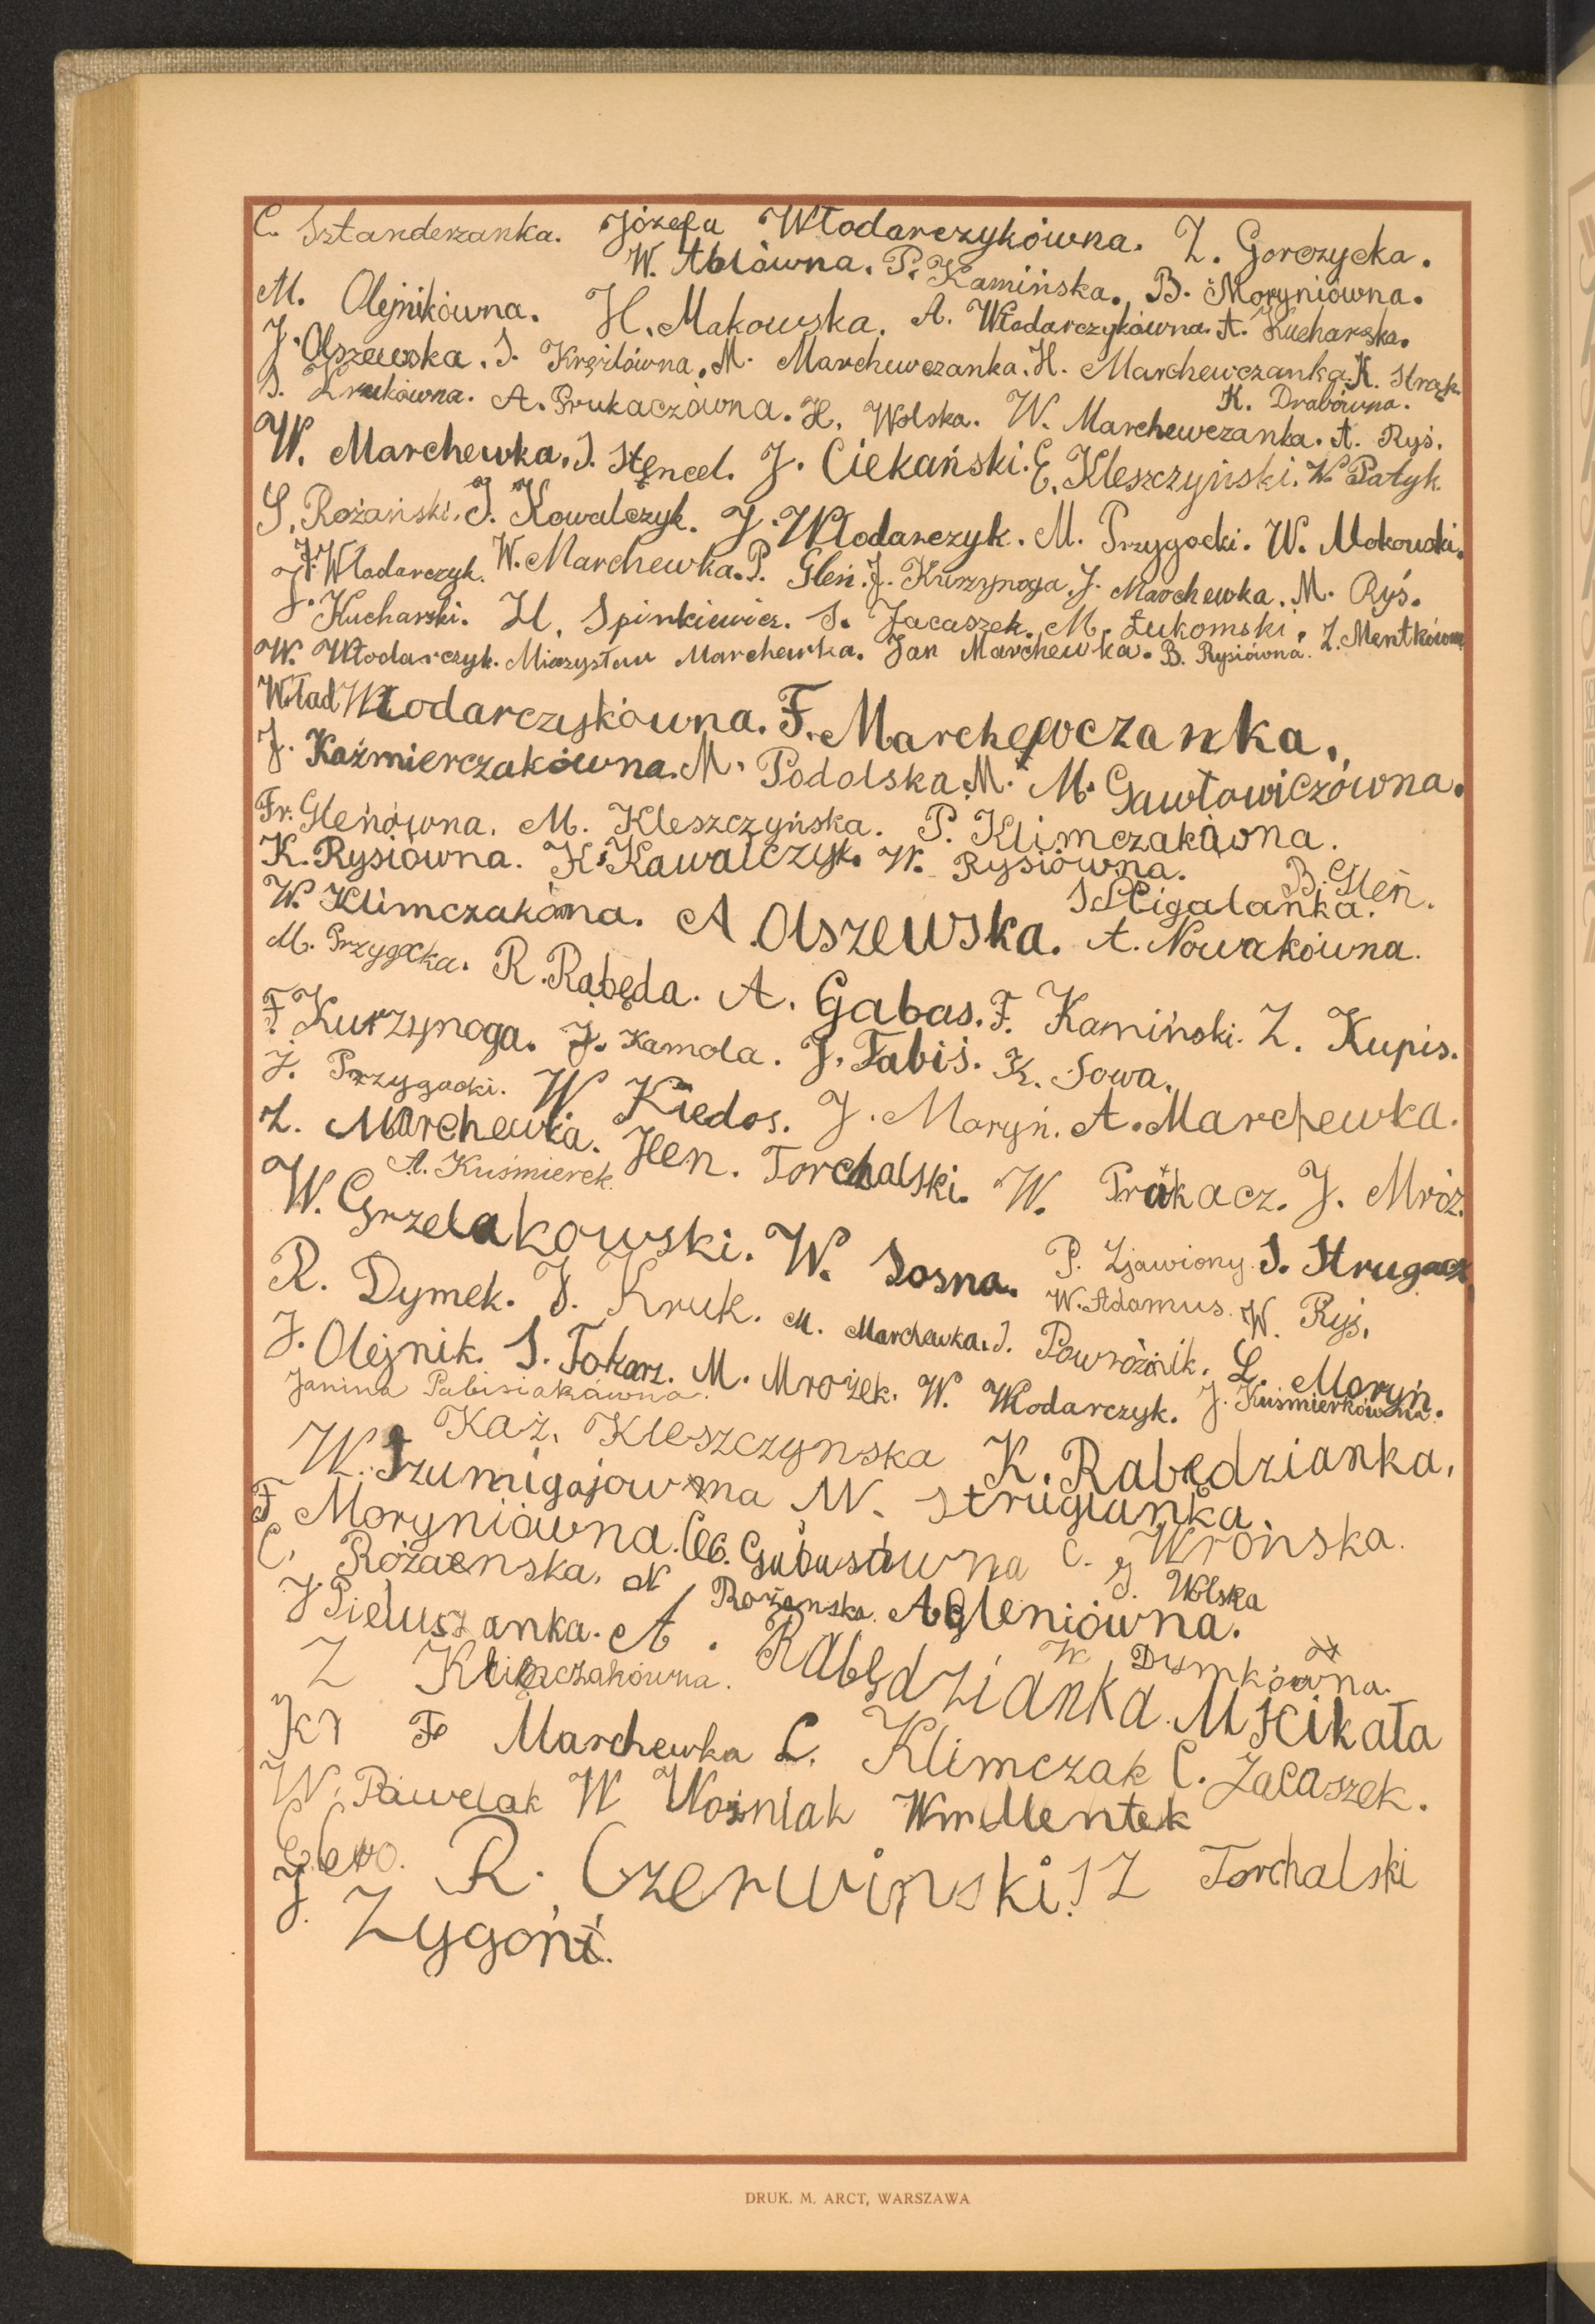 C. Sztanderzanka. Józefa Włodarczykówna. Z. Gorczycka.
W. Ablówna. P. Kamińska. B. Moryniówna.
M. Olejnikówna. H. Makowska. A. Włodarczykówna. A. Kucharska.
J. Olszewska. S. Krężlówna. M. Marchewczanka. H. Marchewczanka. K. Strąk.
K. Drabówna.
S. Krukówna. A. Prukaczówna. H. Wolska. W. Marchewczanka. A. Ryś.
W. Marchewka. S. Stencel. J. Ciekański. E. Kleszczyński. W. Patyk.
S. Rożański. J. Kowalczyk. J. Włodarczyk. M. Przygocki. W. Makowski.
J. Włodarczyk. W. Marchewka. P. Gleń. J. Kurzynoga. J. Marchewka. M. Ryś.
J. Kucharski. H. Spinkiewicz. S. Jacaszek. M. Łukomski. Z. Mentkówna
W. Włodarczyk. Mieczysław Marchewka. Jan Marchewka. B. Rysiówna.
Wład Włodarczykówna. F. Marchewczanka.
J. Kaźmierczakówna. M. Podolska. M. M. Gawłowiczówna.
Fr. Gleńówna. M. Kleszczyńska. P. Klimczakówna.
K. Rysiówna. K. Kawalczyk. W. Rysiówna. B. Gleń.
S. Migalanka.
W. Klimczakówna. A. Olszewska. A. Nowakówna.
M. Przygocka. R. Rabęda. A. Gabas. F. Kamiński. Z. Kupis.
F. Kurzynoga. J. Kamola. J. Fabiś. K. Sowa.
J. Przygodki. W Kiedos. J. Moryń. A. Marchewka.
Z. Marchewka. Hen. Torchalski. W. Prukacz. J. Mróz.
A. Kuśmierek.
W. Grzelakowski. W. Sosna. P. Zjawiony. S. Strugacz
W. Adamus. W. Ryś.
R. Dymek. J. Kruk. M. Marchewka. S. Powroźnik. L. Moryń.
J. Olejnik. S. Tokarz. M. Mrożek. W. Włodarczyk. J. Kuśmierkówna.
Janina Pabisiakówna.
Kaź. Kleszczynska K. Rabędzianka.
W. Szumigajowna W. Strugianka.
F Moryniówna. Cec. Gabasówna C. Wrońska.
C. Rożaenska. N Rożanska. J. Wolska
J Pieluszanka. A. Gleniówna.
A. Rabędzianka. W Dymkówna.
Z Klimczakówna. M Scikała
Kr Fr Marchewka L. Klimczak C. Jacaszek.
W. Pawelak W Woźniak Wm Mentek
R. Czerwinski. S Z Torchalski
J. Zygoń.
DRUK. M. ARCT, WARSZAWA